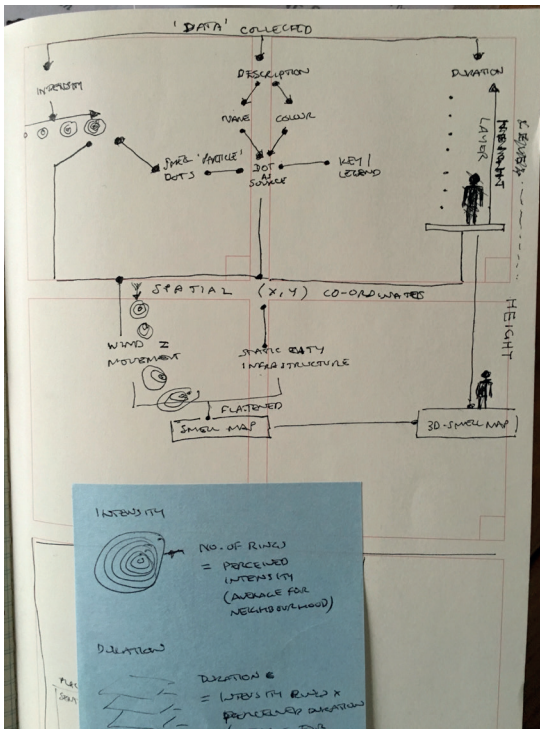 'DATA' COLLECTED
INTENSITY
DESCRIPTION
DURATION
NAME
COLOUR
SMELL 'PARTICLE'
DOTS
DOT
AS
SOURCE
KEY /
LEGEND
LAYER
HEIGHT
SPATIAL (X,Y) CO-ORDINATES
WIND =
MOVEMENT
STATIC CITY
INFRASTRUCTURE
FLATTENED
SMELL MAP
3D-SMELL MAP
INTENSITY
NO. OF RINGS
= PERCEIVED
INTENSITY
(AVERAGE FOR
NEIGHBOURHOOD)
DURATION
DURATION
= INTENSITY RINGS X
PERCEIVED DURATION